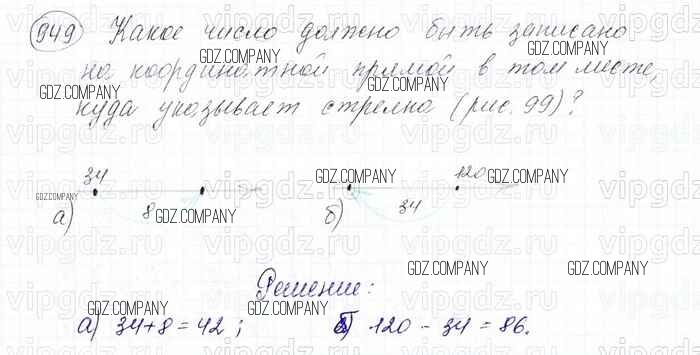 949 Какое число должно быть записано
GDZ.COMPANY GDZ.COMPANY
на координатной прямой в том месте,
GDZ.COMPANY GDZ.COMPANY
куда указывает стрелка (рис. 99)?
34 GDZ.COMPANY 120 GDZ.COMPANY
GDZ.COMPANY
а) 8 GDZ.COMPANY б) 34 GDZ.COMPANY
GDZ.COMPANY GDZ.COMPANY
Решение:
GDZ.COMPANY GDZ.COMPANY
а) 34+8=42; б) 120-34=86.
vipgdz.ru